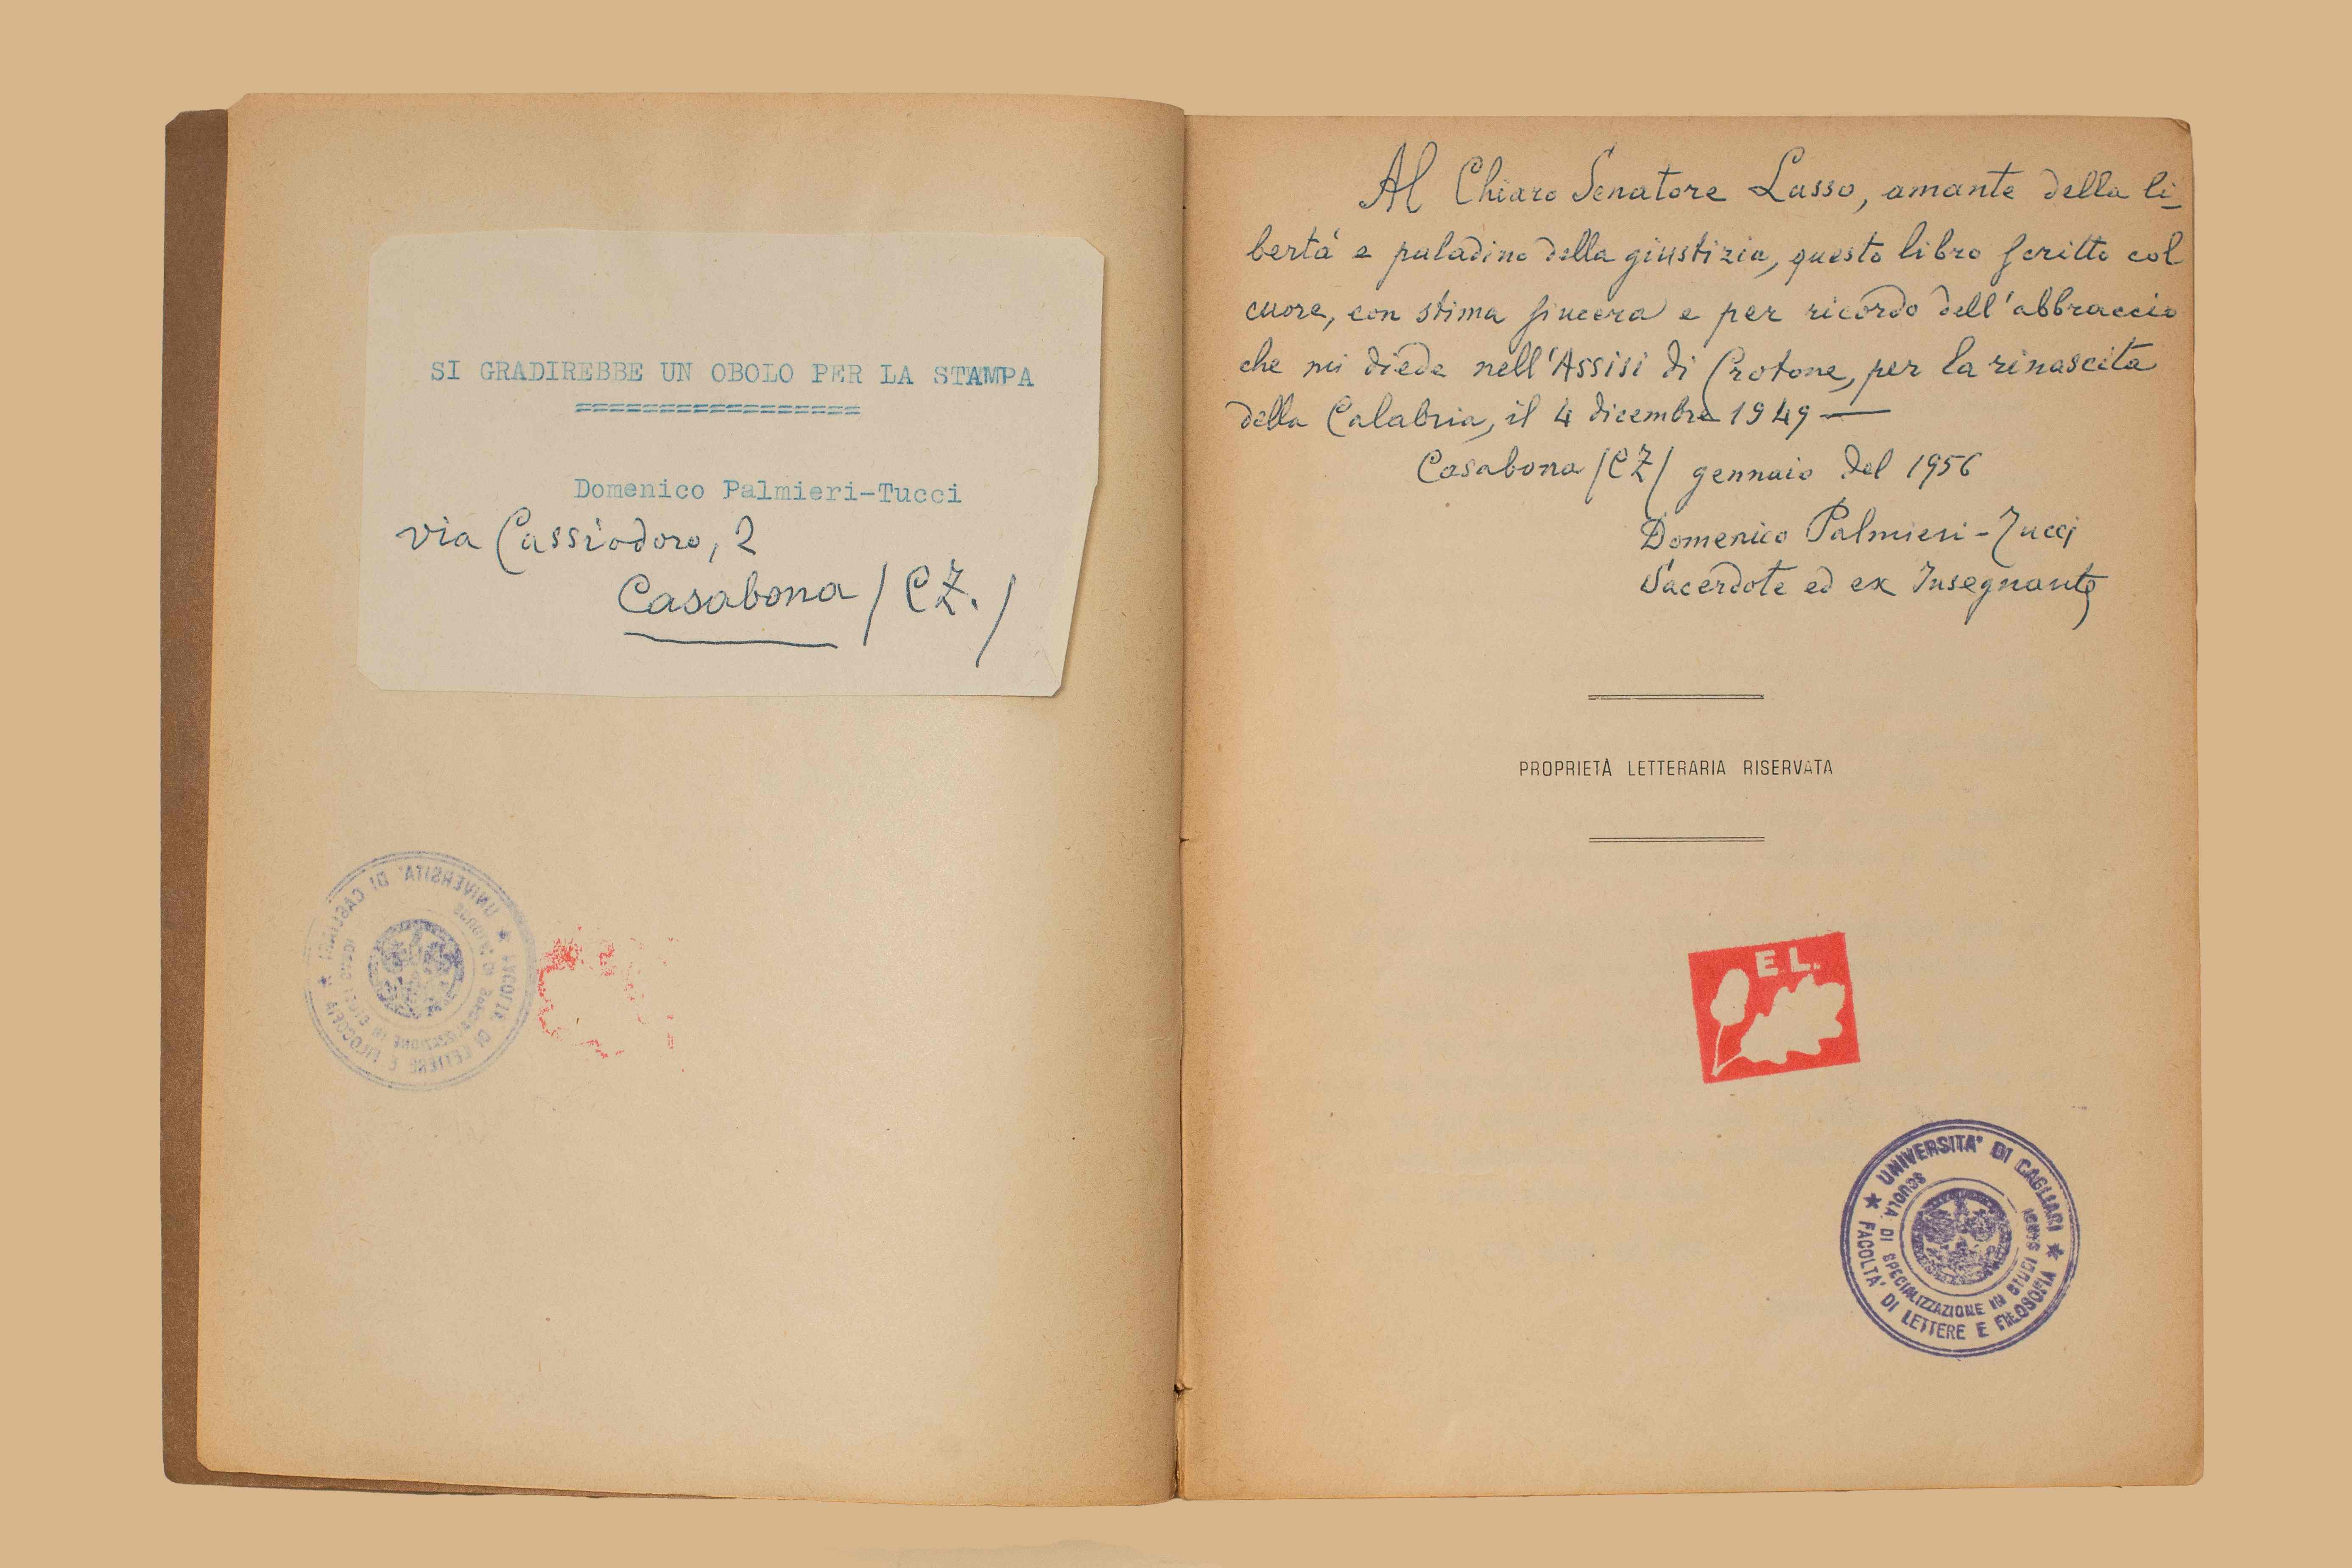 SI GRADIREBBE UN OBOLO PER LA STAMPA
=================
Domenico Palmieri-Tucci
via Cassiodoro, 2
Casabona /CZ./
Al Chiaro Senatore Lusso, amante della li-
bertà e paladino della giustizia, questo libro scritto col
cuore, con stima sincera e per ricordo dell'abbraccio
che mi diede nell'Assisi di Crotone, per la rinascita
della Calabria, il 4 dicembre 1949 —
Casabona /CZ/ gennaio del 1956
Domenico Palmieri-Tucci
Sacerdote ed ex Insegnante
PROPRIETÀ LETTERARIA RISERVATA
E L.
★ UNIVERSITA' DI CAGLIARI ★
FACOLTA' DI LETTERE E FILOSOFIA
SCUOLA DI SPECIALIZZAZIONE IN STUDI SARDI